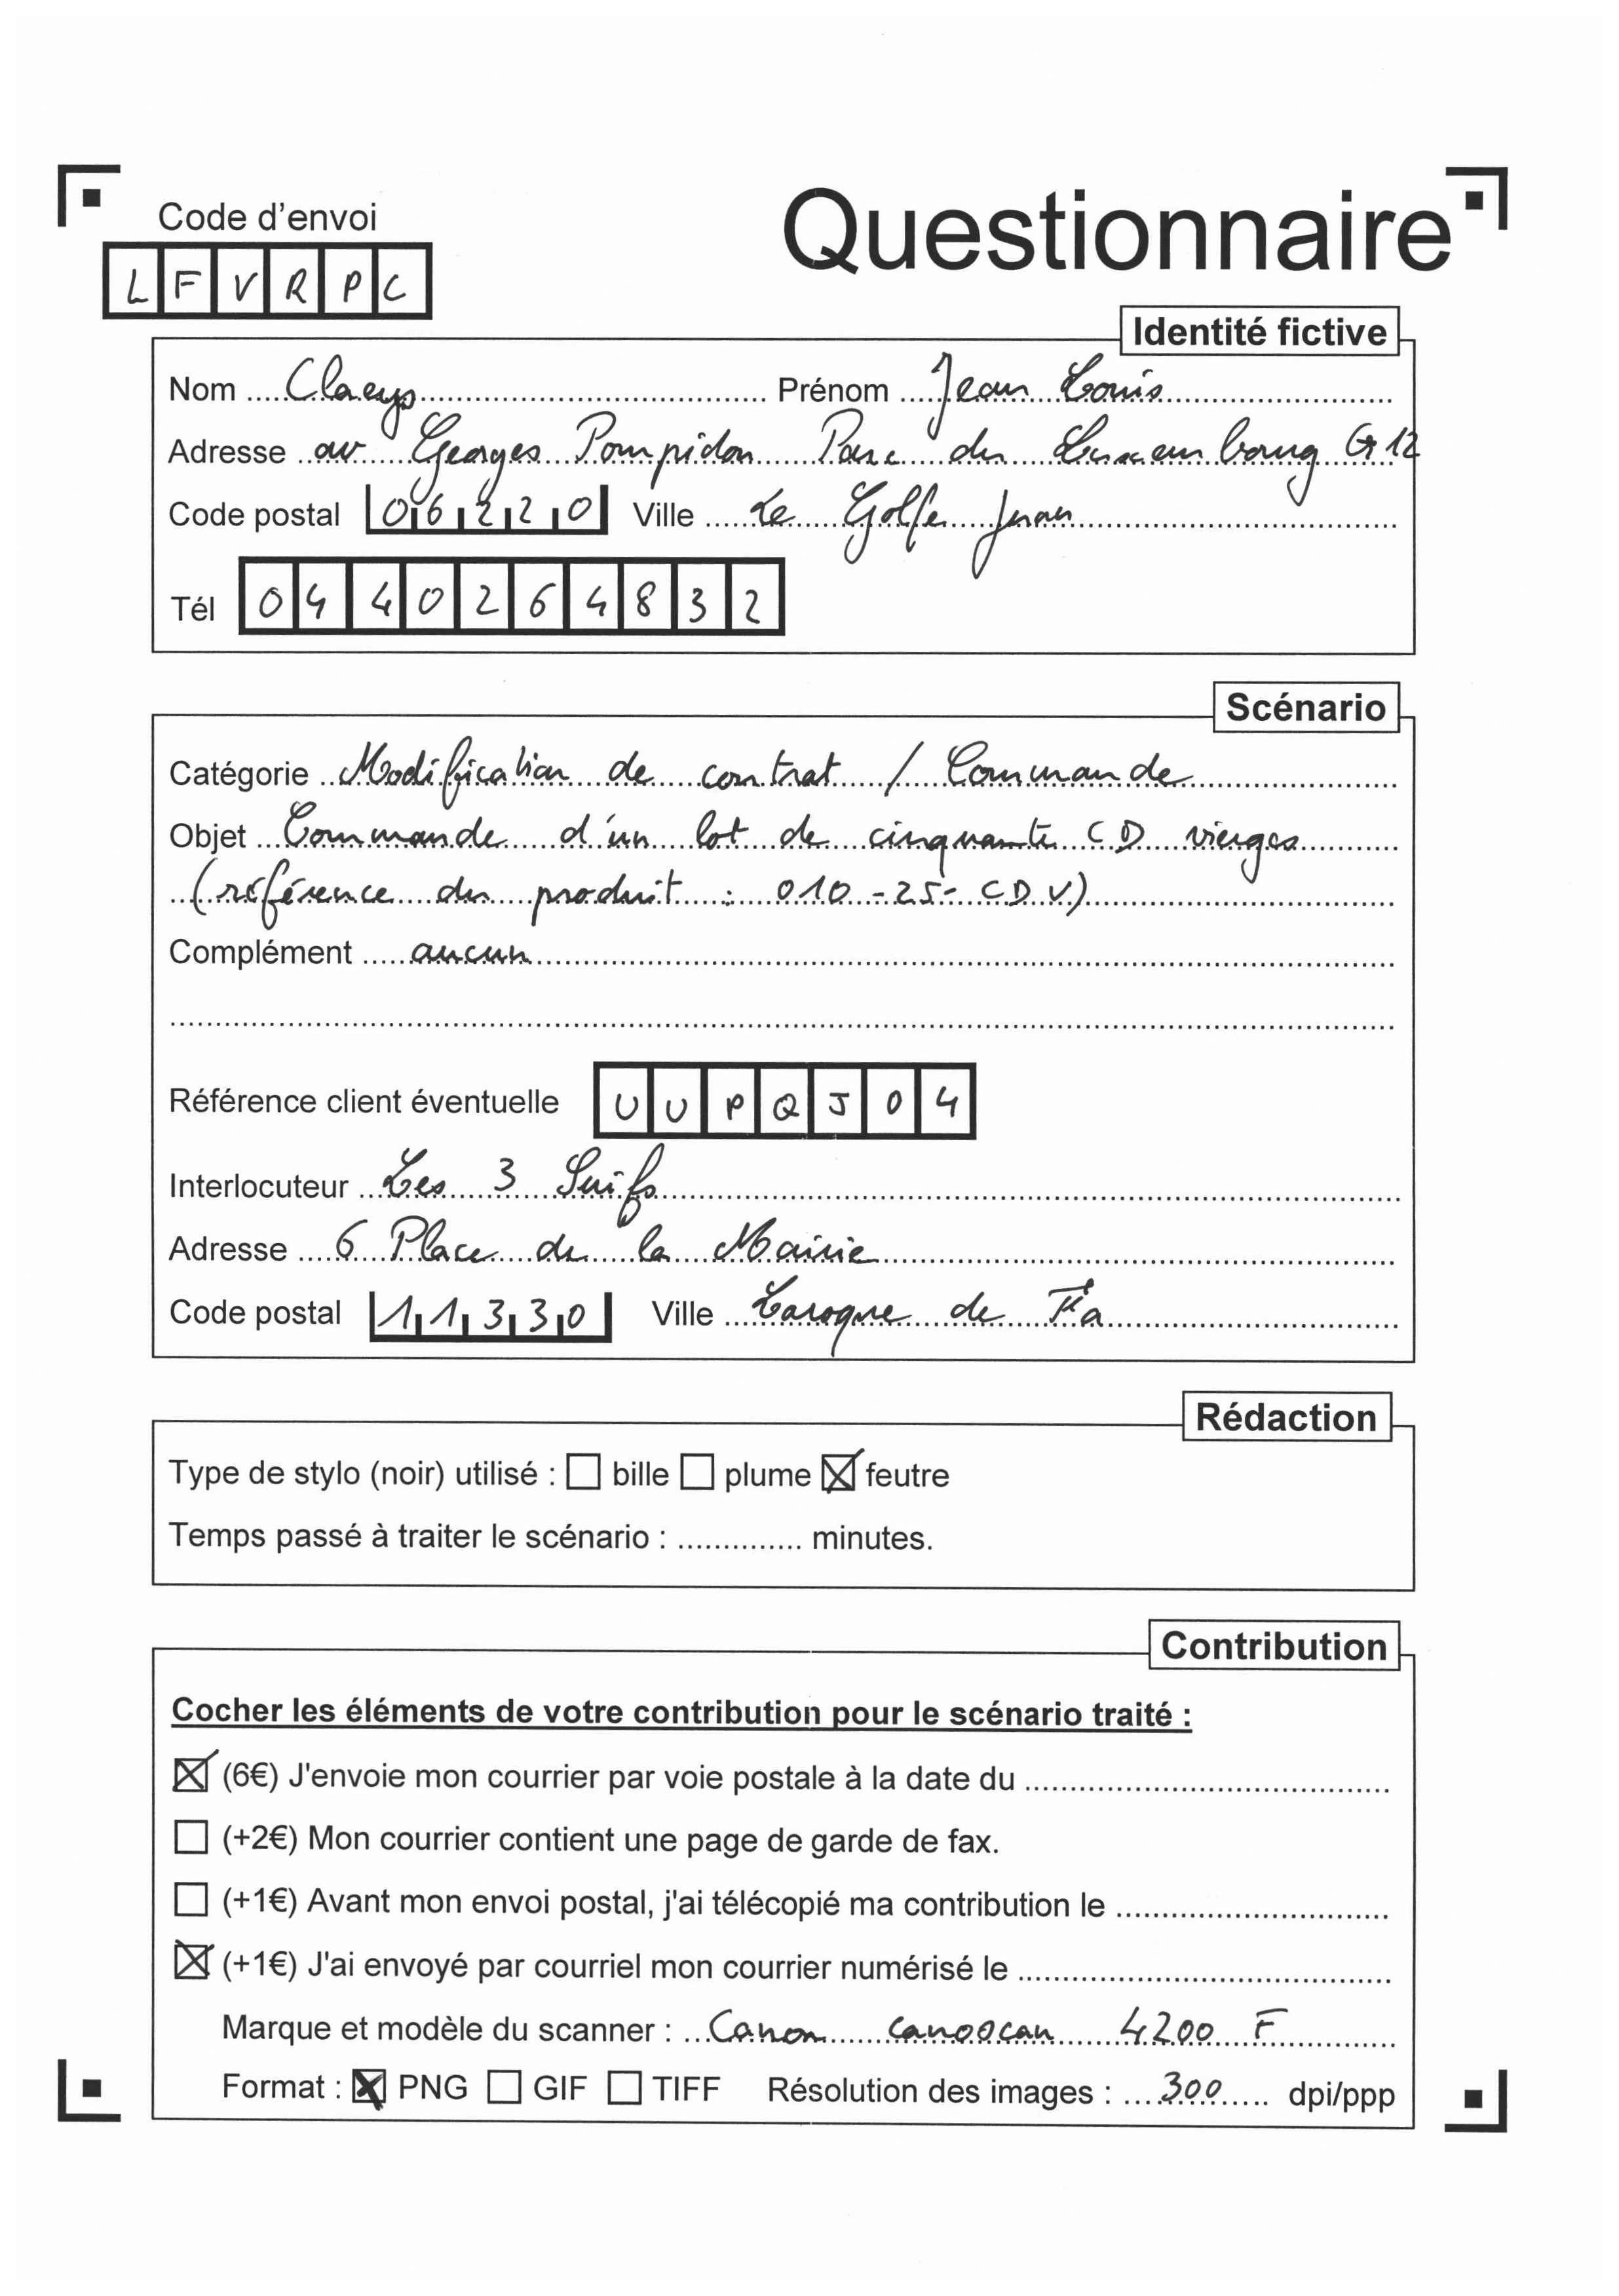 Questionnaire
Code d'envoi
L F V R P C
Identité fictive
Nom Claeys Prénom Jean Louis
Adresse av Georges Pompidou Parc du Luxembourg G12
Code postal 06220 Ville Le Golfe Juan
Tél 0440264832
Scénario
Catégorie Modification de contrat / Commande
Objet Commande d'un lot de cinquante CD vierges
(référence du produit : 010-25-CDV)
Complément aucun
Référence client éventuelle UUPQJ04
Interlocuteur Les 3 Suifs
Adresse 6 Place de la Mairie
Code postal 11330 Ville Laroque de Fa
Rédaction
Type de stylo (noir) utilisé : bille plume feutre
Temps passé à traiter le scénario : .............. minutes.
Contribution
Cocher les éléments de votre contribution pour le scénario traité :
(6€) J'envoie mon courrier par voie postale à la date du
(+2€) Mon courrier contient une page de garde de fax.
(+1€) Avant mon envoi postal, j'ai télécopié ma contribution le
(+1€) J'ai envoyé par courriel mon courrier numérisé le
Marque et modèle du scanner : Canon canoscan 4200 F
Format : PNG GIF TIFF Résolution des images : 300 dpi/ppp